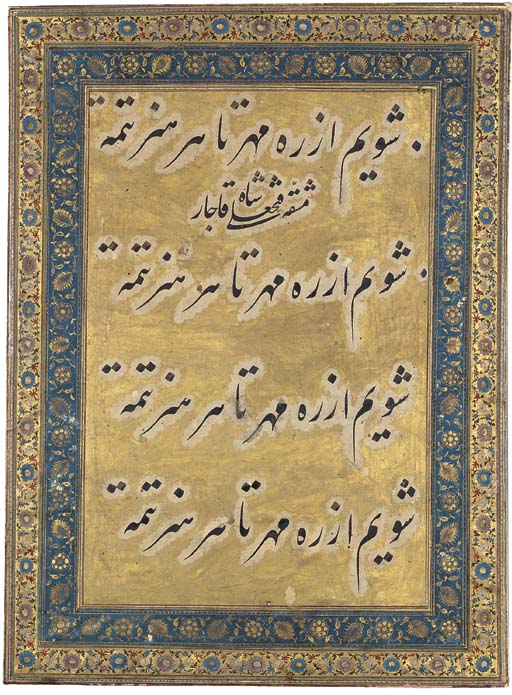 شویم از ره مهر تا سر هنر تتمة
مشقه فتحعلی شاه قاجار
شویم از ره مهر تا سر هنر تتمة
شویم از ره مهر تا سر هنر تتمة
شویم از ره مهر تا سر هنر تتمة